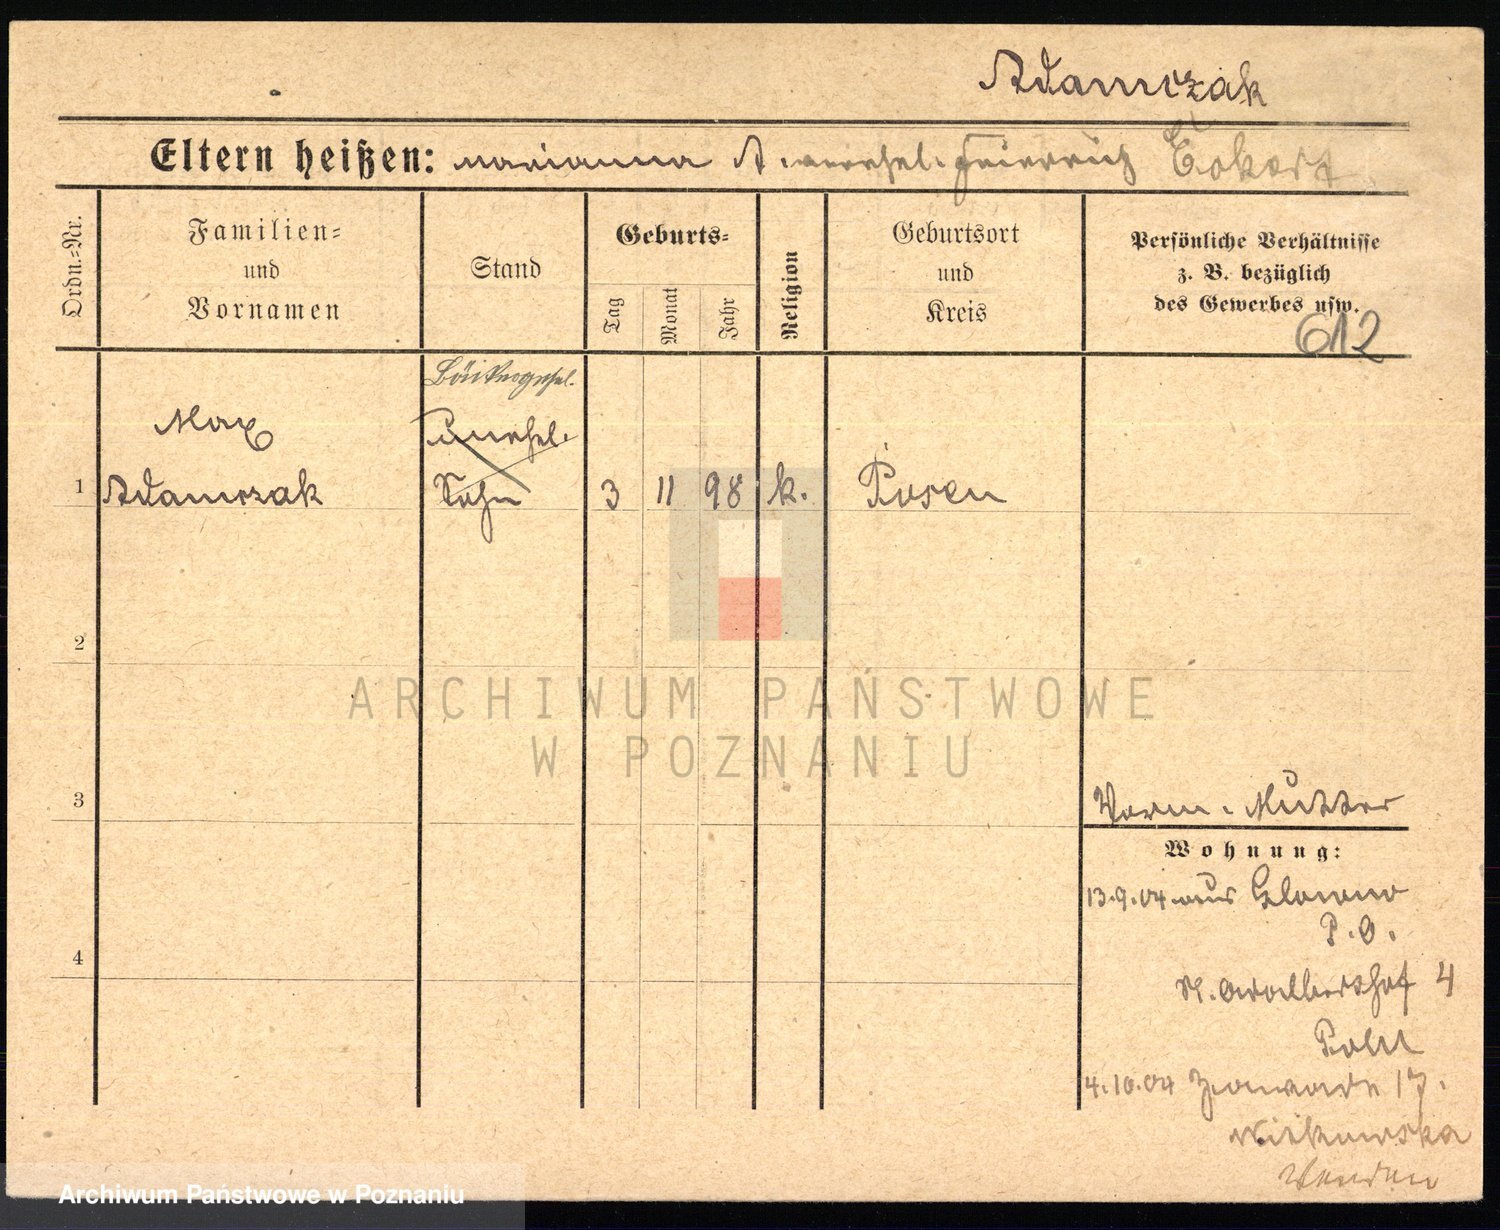 Adamczak
Eltern heißen: Marianna A. unehel. Friedrich Eckert
Ordn.-Nr.
Familien-
und
Vornamen
Stand
Geburts-
Tag
Monat
Jahr
Religion
Geburtsort
und
Kreis
Persönliche Verhältnisse
z. B. bezüglich
des Gewerbes usw.
612
Bäckergesel.
Max
unehel.
1 Adamczak Sohn 3 11 98 k. Posen
2
ARCHIWUM PAŃSTWOWE
W POZNANIU
3
Vorm. Mutter
Wohnung:
13.9.04 aus Glowno
P.O.
4
4
4.10.04 Zawade 17.
Witkowska
Archiwum Państwowe w Poznaniu